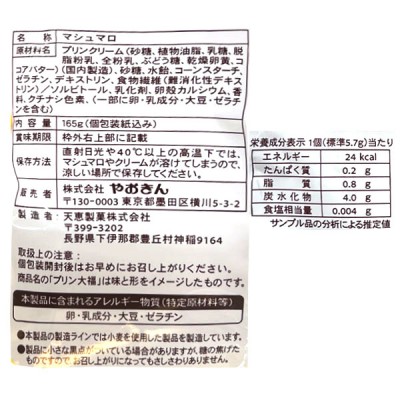 名称 マシュマロ
原材料名 プリンクリーム(砂糖、植物油脂、乳糖、脱
脂粉乳、全粉乳、ぶどう糖、乾燥卵黄、コ
コアバター)(国内製造)、砂糖、水飴、コーンスターチ、
ゼラチン、デキストリン、食物繊維(難消化性デキス
トリン)/ソルビトール、乳化剤、卵殻カルシウム、香
料、クチナシ色素、(一部に卵・乳成分・大豆・ゼラチ
ンを含む)
内容量 165g(個包装紙込み)
賞味期限 枠外右上部に記載
保存方法 直射日光や40℃以上の高温下では、
マシュマロやクリームが溶けてしまうので、
涼しい場所で保存してください。
販売者 株式会社 やおきん
〒130-0003 東京都墨田区横川5-3-2
製造者:天恵製菓株式会社
〒399-3202
長野県下伊那郡豊丘村神稲9164
取扱上の注意:
個包装開封後はお早めにお召し上がりください。
商品名の「プリン大福」は味と形をイメージしたものです。
本製品に含まれるアレルギー物質(特定原材料等)
卵・乳成分・大豆・ゼラチン
●本品の製造ラインでは小麦を使用した製品を製造しています。
●製品に小さな黒点がついている場合がありますが、糖の焦げた
ものですので お召し上がりになってもさしさわりありません。
栄養成分表示 1個(標準5.7g)当たり
エネルギー 24 kcal
たんぱく質 0.2 g
脂質 0.8 g
炭水化物 4.0 g
食塩相当量 0.004 g
サンプル品の分析による推定値